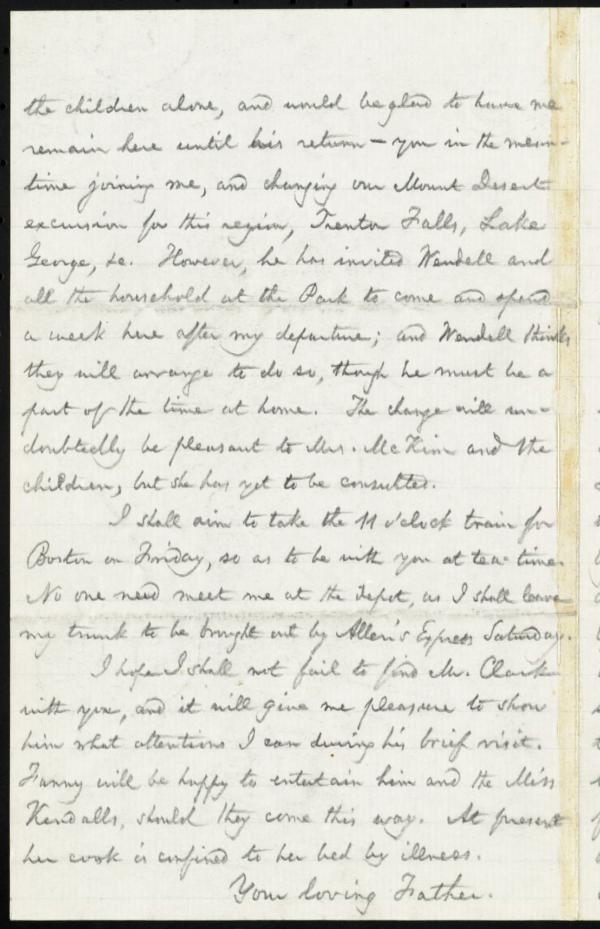 the children alone, and would be glad to have me
remain here until his return — you in the mean-
time joining me, and changing our Mount Desert
excursion for this region, Trenton Falls, Lake
George, &c. However, he has invited Wendell and
all the household at the Park to come and spend
a week here after my departure; and Wendell thinks
they will arrange to do so, though he must be a
part of the time at home. The change will un-
doubtedly be pleasant to Mrs. McKim and the
children, but she has yet to be consulted.
I shall aim to take the 11 o'clock train for
Boston on Friday, so as to be with you at tea-time.
No one need meet me at the depot, as I shall leave
my trunk to be brought out by Allen's Express Saturday.
I hope I shall not fail to find Mr. Clark
with you, and it will give me pleasure to show
him what attentions I can during his brief visit.
Fanny will be happy to entertain him and the Miss
Kendalls, should they come this way. At present
her cook is confined to her bed by illness.
Your loving Father.